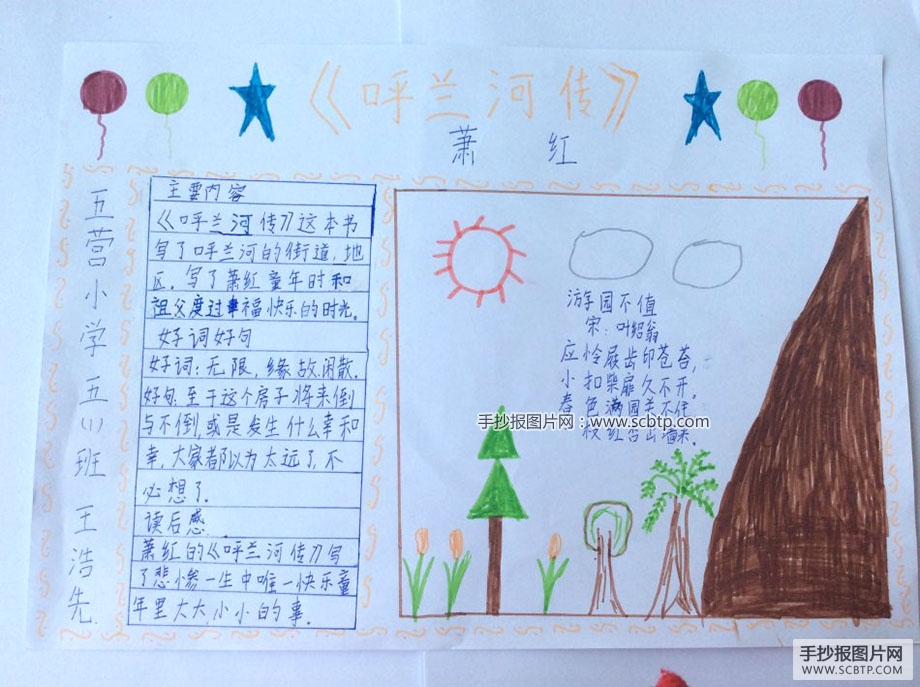 《呼兰河传》
萧 红
五营小学五(1)班 王浩先
主要内容
《呼兰河传》这本书
写了呼兰河的街道,地
区.写了萧红童年时和
祖父度过幸福快乐的时光。
好词好句
好词:无限,缘故,闲散.
好句:至于这个房子将来倒
与不倒,或是发生什么幸和
幸,大家都以为太远了,不
必想了.
读后感
萧红的《呼兰河传》写
了悲惨一生中唯一快乐童
年里大大小小的事.
游园不值
宋:叶绍翁
应怜屐齿印苍苔,
小扣柴扉久不开。
春色满园关不住
枝红杏出墙来.
手抄报图片网:www.scbtp.com
手抄报图片网
WWW.SCBTP.COM